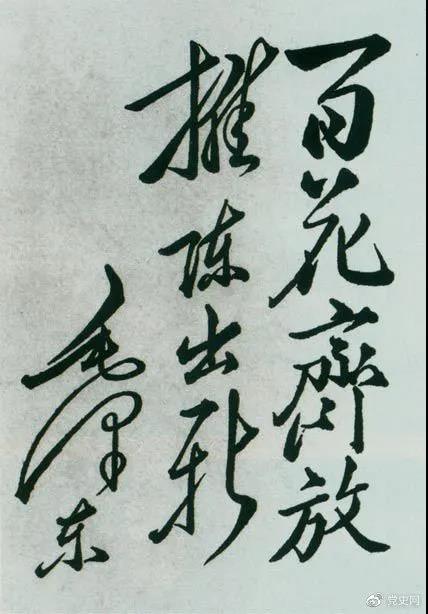 百花齊放
推陈出新
毛泽东
党史网